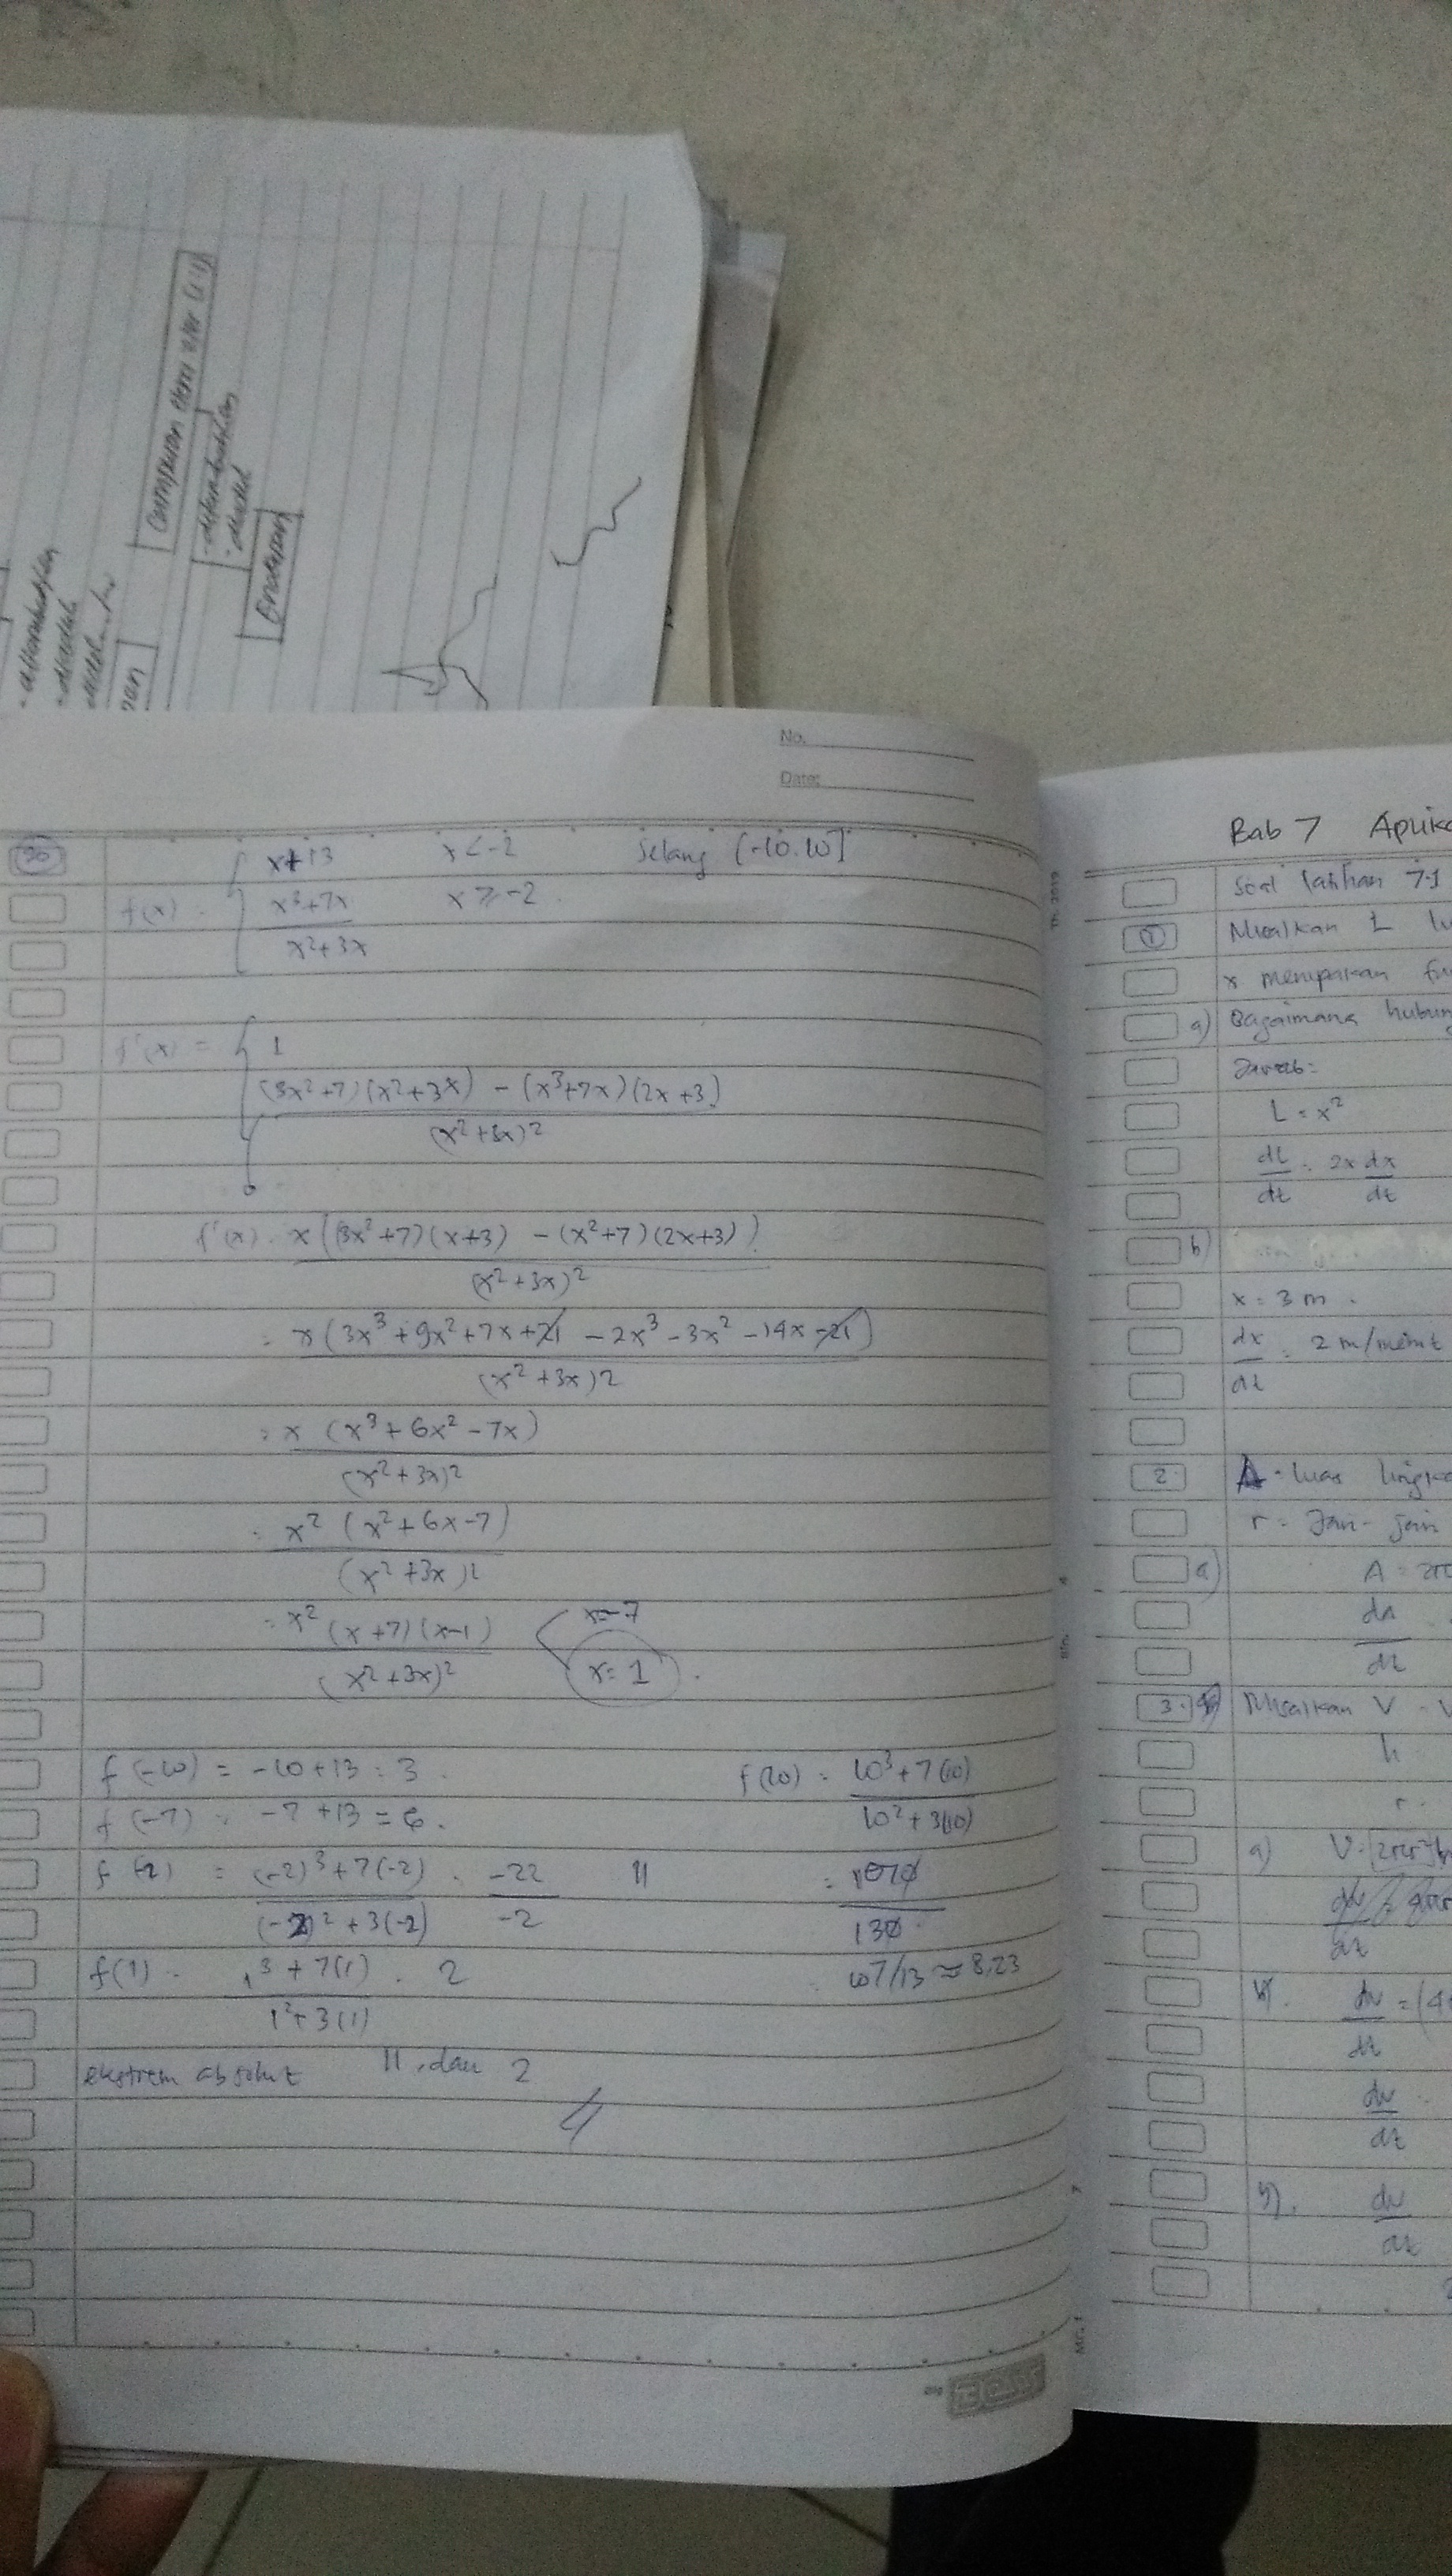 Campuran etern eter (1:1)
Endapan
No.
Date:
30
x+13 x<-2 selang [-10.10]
f(x) = x³+7x x ≥ -2
x²+3x
f'(x) = 1
(3x²+7)(x²+3x) - (x³+7x)(2x+3)
(x²+3x)²
f'(x) = x((3x²+7)(x+3) - (x²+7)(2x+3))
(x²+3x)²
= x(3x³+9x²+7x+21 - 2x³ - 3x² - 14x - 21)
(x²+3x)²
= x (x³+6x²-7x)
(x²+3x)²
= x² (x²+6x-7)
(x²+3x)²
= x² (x+7)(x-1) x=-7
(x²+3x)² x=1
f(-10) = -10+13 = 3
f(-7) = -7+13 = 6.
f(-2) = (-2)³+7(-2) = -22 11
(-2)²+3(-2) -2
f(1) = 1³+7(1) = 2
1²+3(1)
f(10) = 10³+7(10)
10²+3(10)
= 1070
130
107/13 ≈ 8,23
ekstrem absolut 11, dan 2
Bab 7 Aplika
Soal latihan 7.1
1 Misalkan L lu
x merupakan fu
a) Bagaimana hubun
Jawab:
L = x²
dL = 2x dx
dt dt
b)
x = 3 m.
dx = 2 m/menit
dt
2. A = luas lingka
r = Jari-jari
a) A =
dA
dt
3. Misalkan V =
h
r
a) V =
dt
b). dv = (4
dt
dv
dt
dv
dt